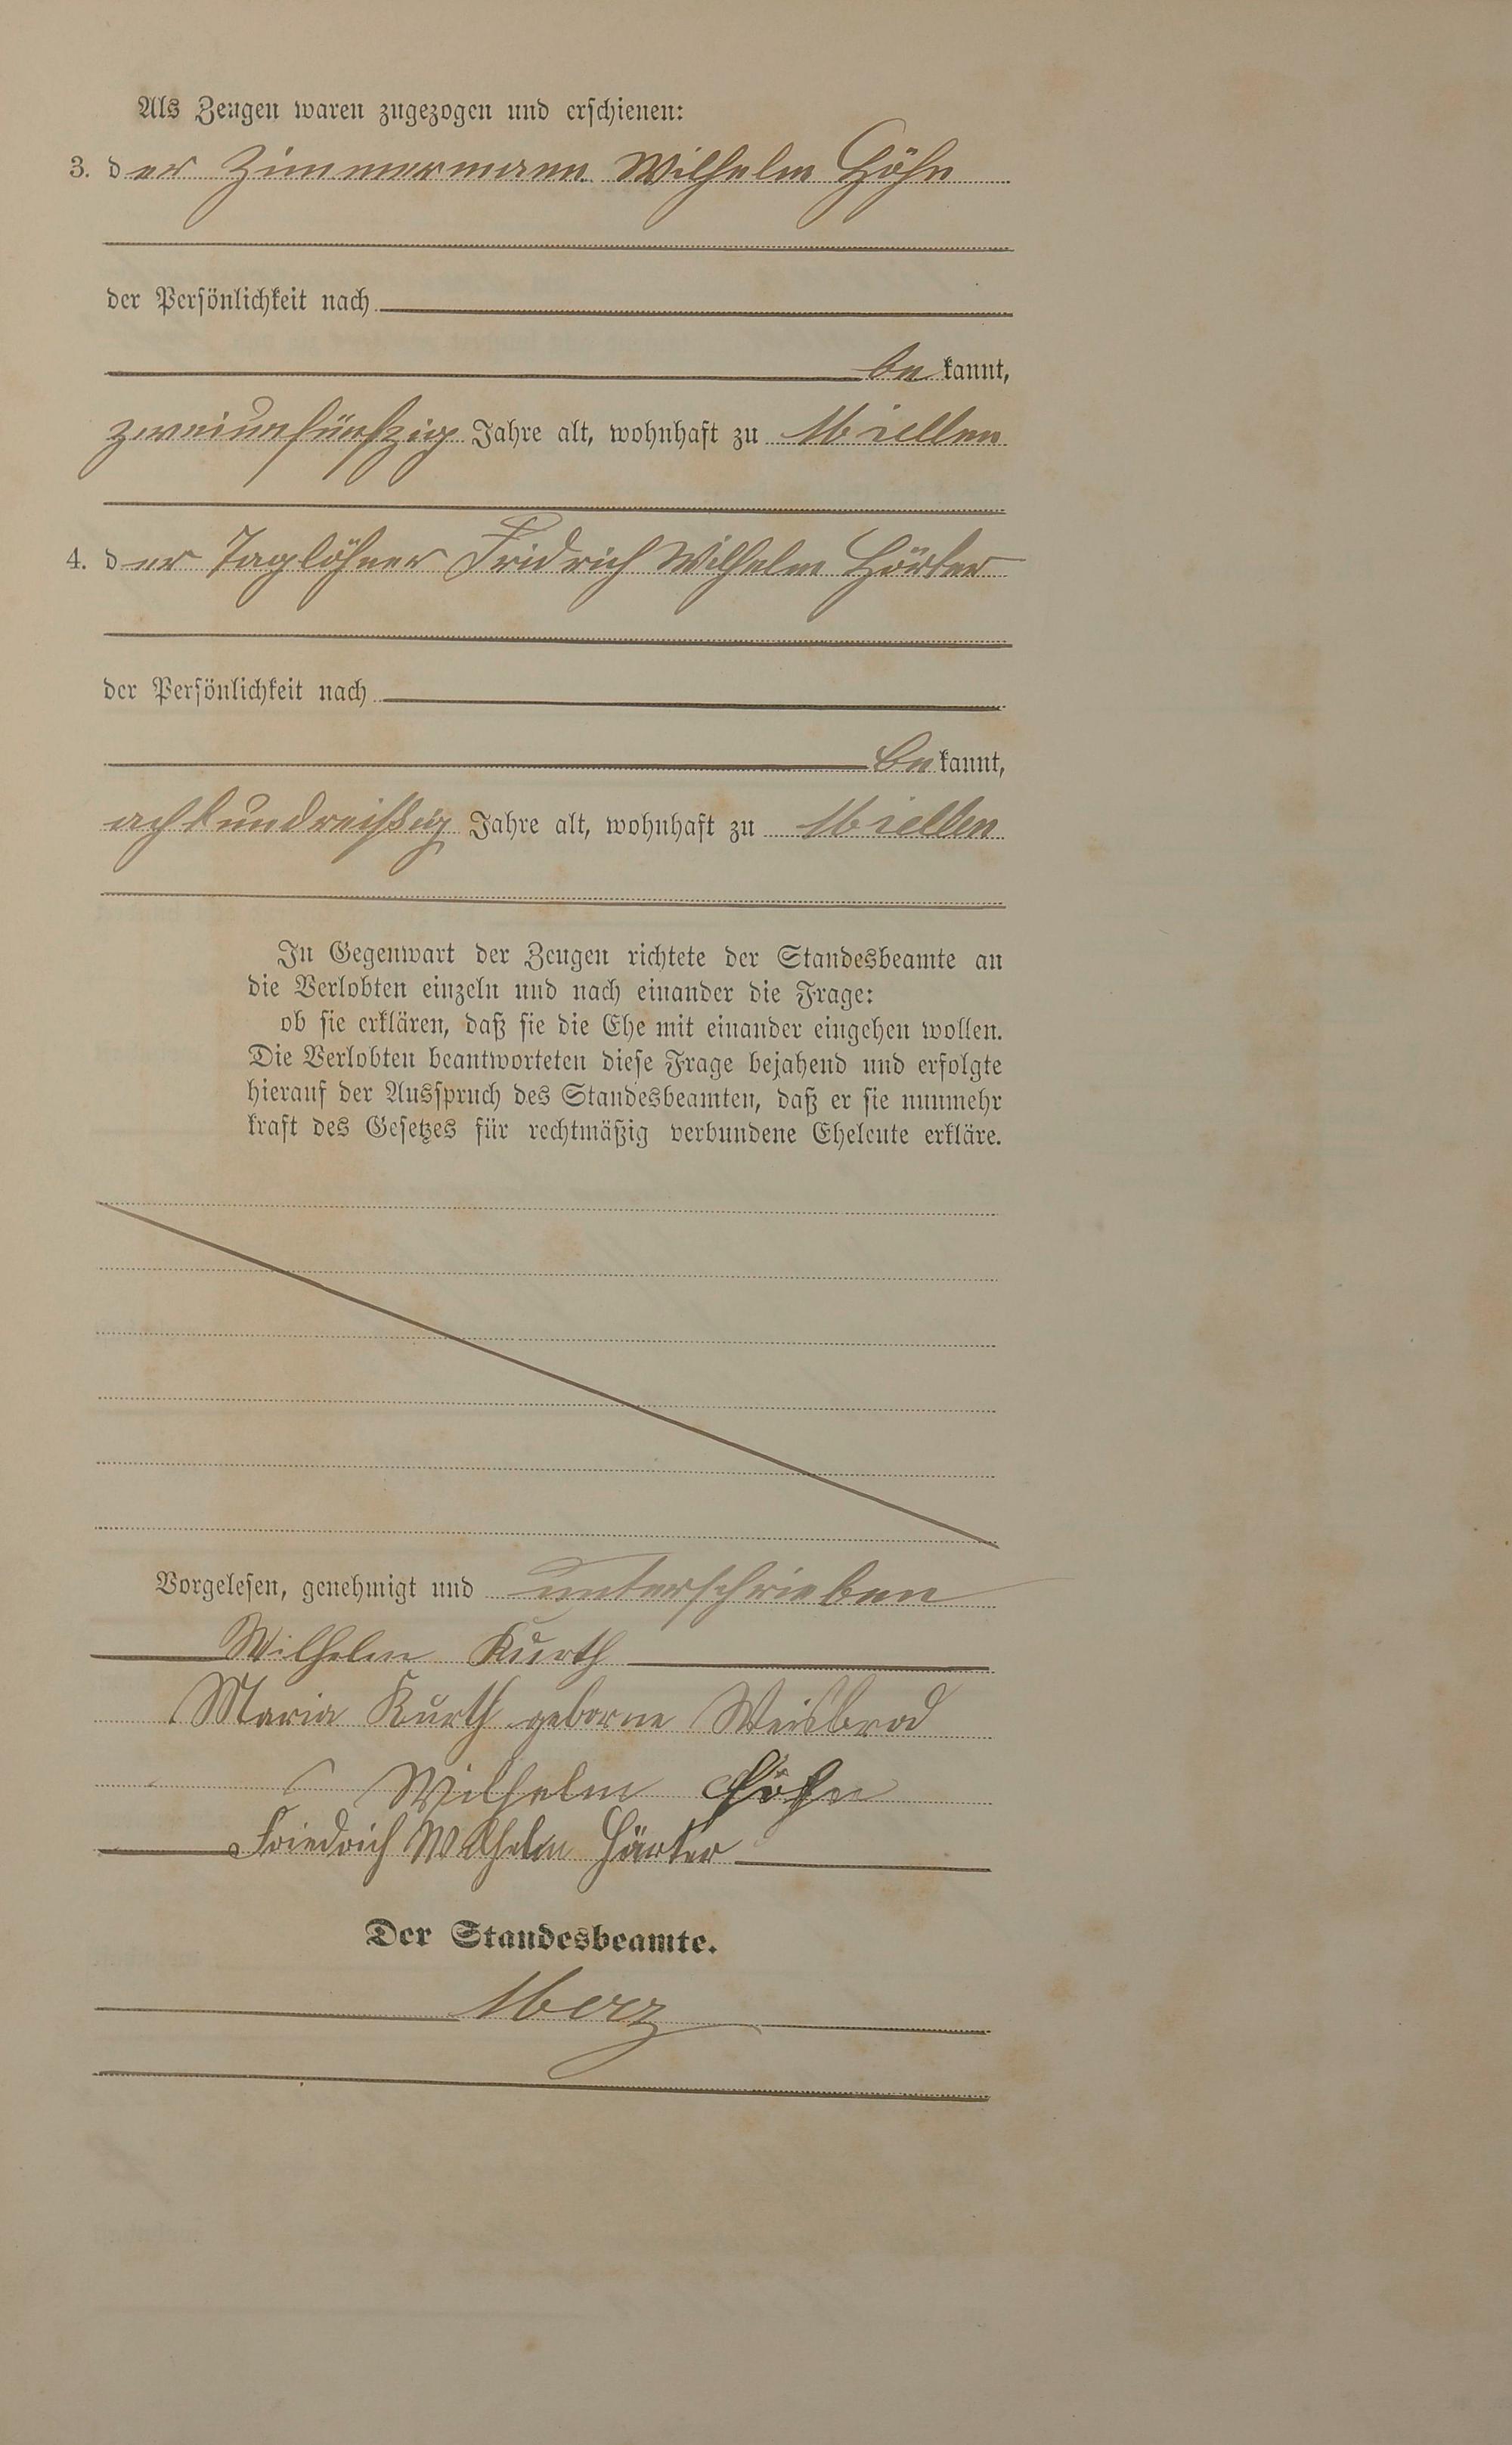 Als Zeugen waren zugezogen und erschienen:
3. der Zimmermann Wilhelm Höhn
der Persönlichkeit nach
bekannt,
zweiunfünfzig Jahre alt, wohnhaft zu Miellen
4. der Taglöhner Fridrich Wilhelm Hörter
der Persönlichkeit nach
bekannt,
achtundreißig Jahre alt, wohnhaft zu Miellen
In Gegenwart der Zeugen richtete der Standesbeamte an
die Verlobten einzeln und nach einander die Frage:
ob sie erklären, daß sie die Ehe mit einander eingehen wollen.
Die Verlobten beantworteten diese Frage bejahend und erfolgte
hierauf der Ausspruch des Standesbeamten, daß er sie nunmehr
kraft des Gesetzes für rechtmäßig verbundene Eheleute erkläre.
Vorgelesen, genehmigt und unterschrieben
Wilhelm Kurth
Maria Kurth geborne Weisbrod
Wilhelm Höhn
Friedrich Wilhelm Härter
Der Standesbeamte.
Merz